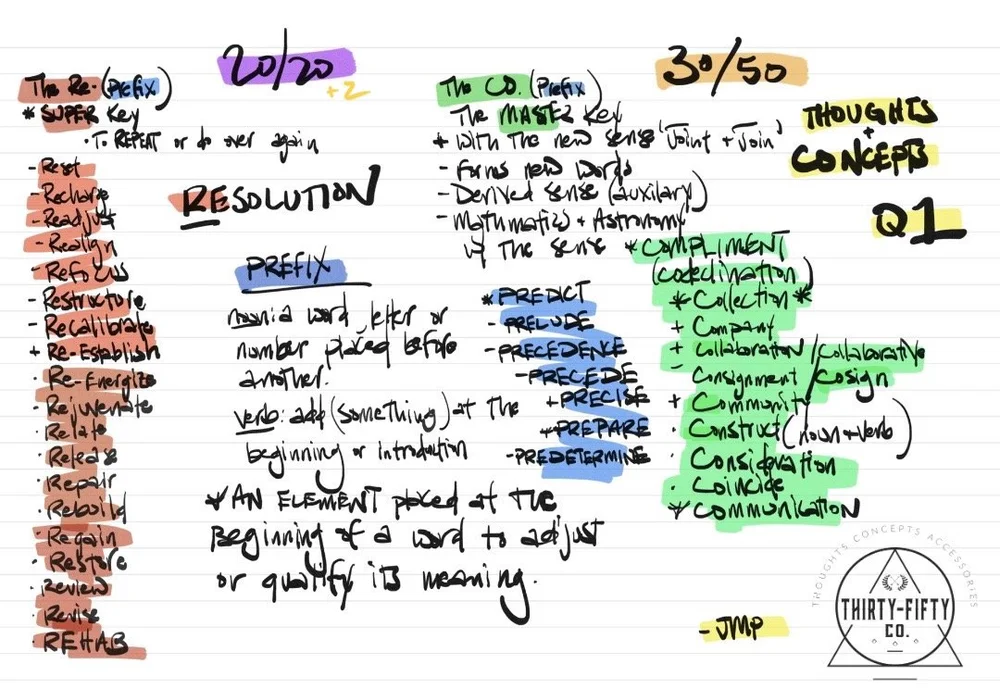 20/20
+2
The Re- (Prefix)
* SUPER Key
· To REPEAT or do over again
- Reset
- Recharge
- Readjust
- Realign
- Refocus
- Restructure
- Recalibrate
+ Re-Establish
· Re-Energize
· Rejuvenate
· Relate
· Release
· Repair
· Rebuild
· Regain
· Restore
· Review
· Revise
· REHAB
RESOLUTION
PREFIX
noun: a word, letter or
number placed before
another.
verb: add (something) at the
beginning or introduction
* AN ELEMENT placed at the
Beginning of a word to adjust
or qualify its meaning.
* PREDICT
- PRELUDE
- PRECEDENCE
- PRECEDE
+ PRECISE
+ PREPARE
- PREDETERMINE
30/50
The CO. (Prefix)
The MASTER Key
+ With the new sense 'Joint + Join'
- Forms new words
- Derived sense (auxilary)
- Mathmatics + Astronomy
w/ The sense
* COMPLIMENT
(codeclination)
* Collection *
+ Company
+ Collaboration / Collaborative
- Consignment / Cosign
+ Community
· Construct (noun + verb)
· Consideration
· Coincide
* Communication
THOUGHTS
+
CONCEPTS
Q1
- JMP
THOUGHTS CONCEPTS ACCESSORIES
THIRTY-FIFTY
CO.